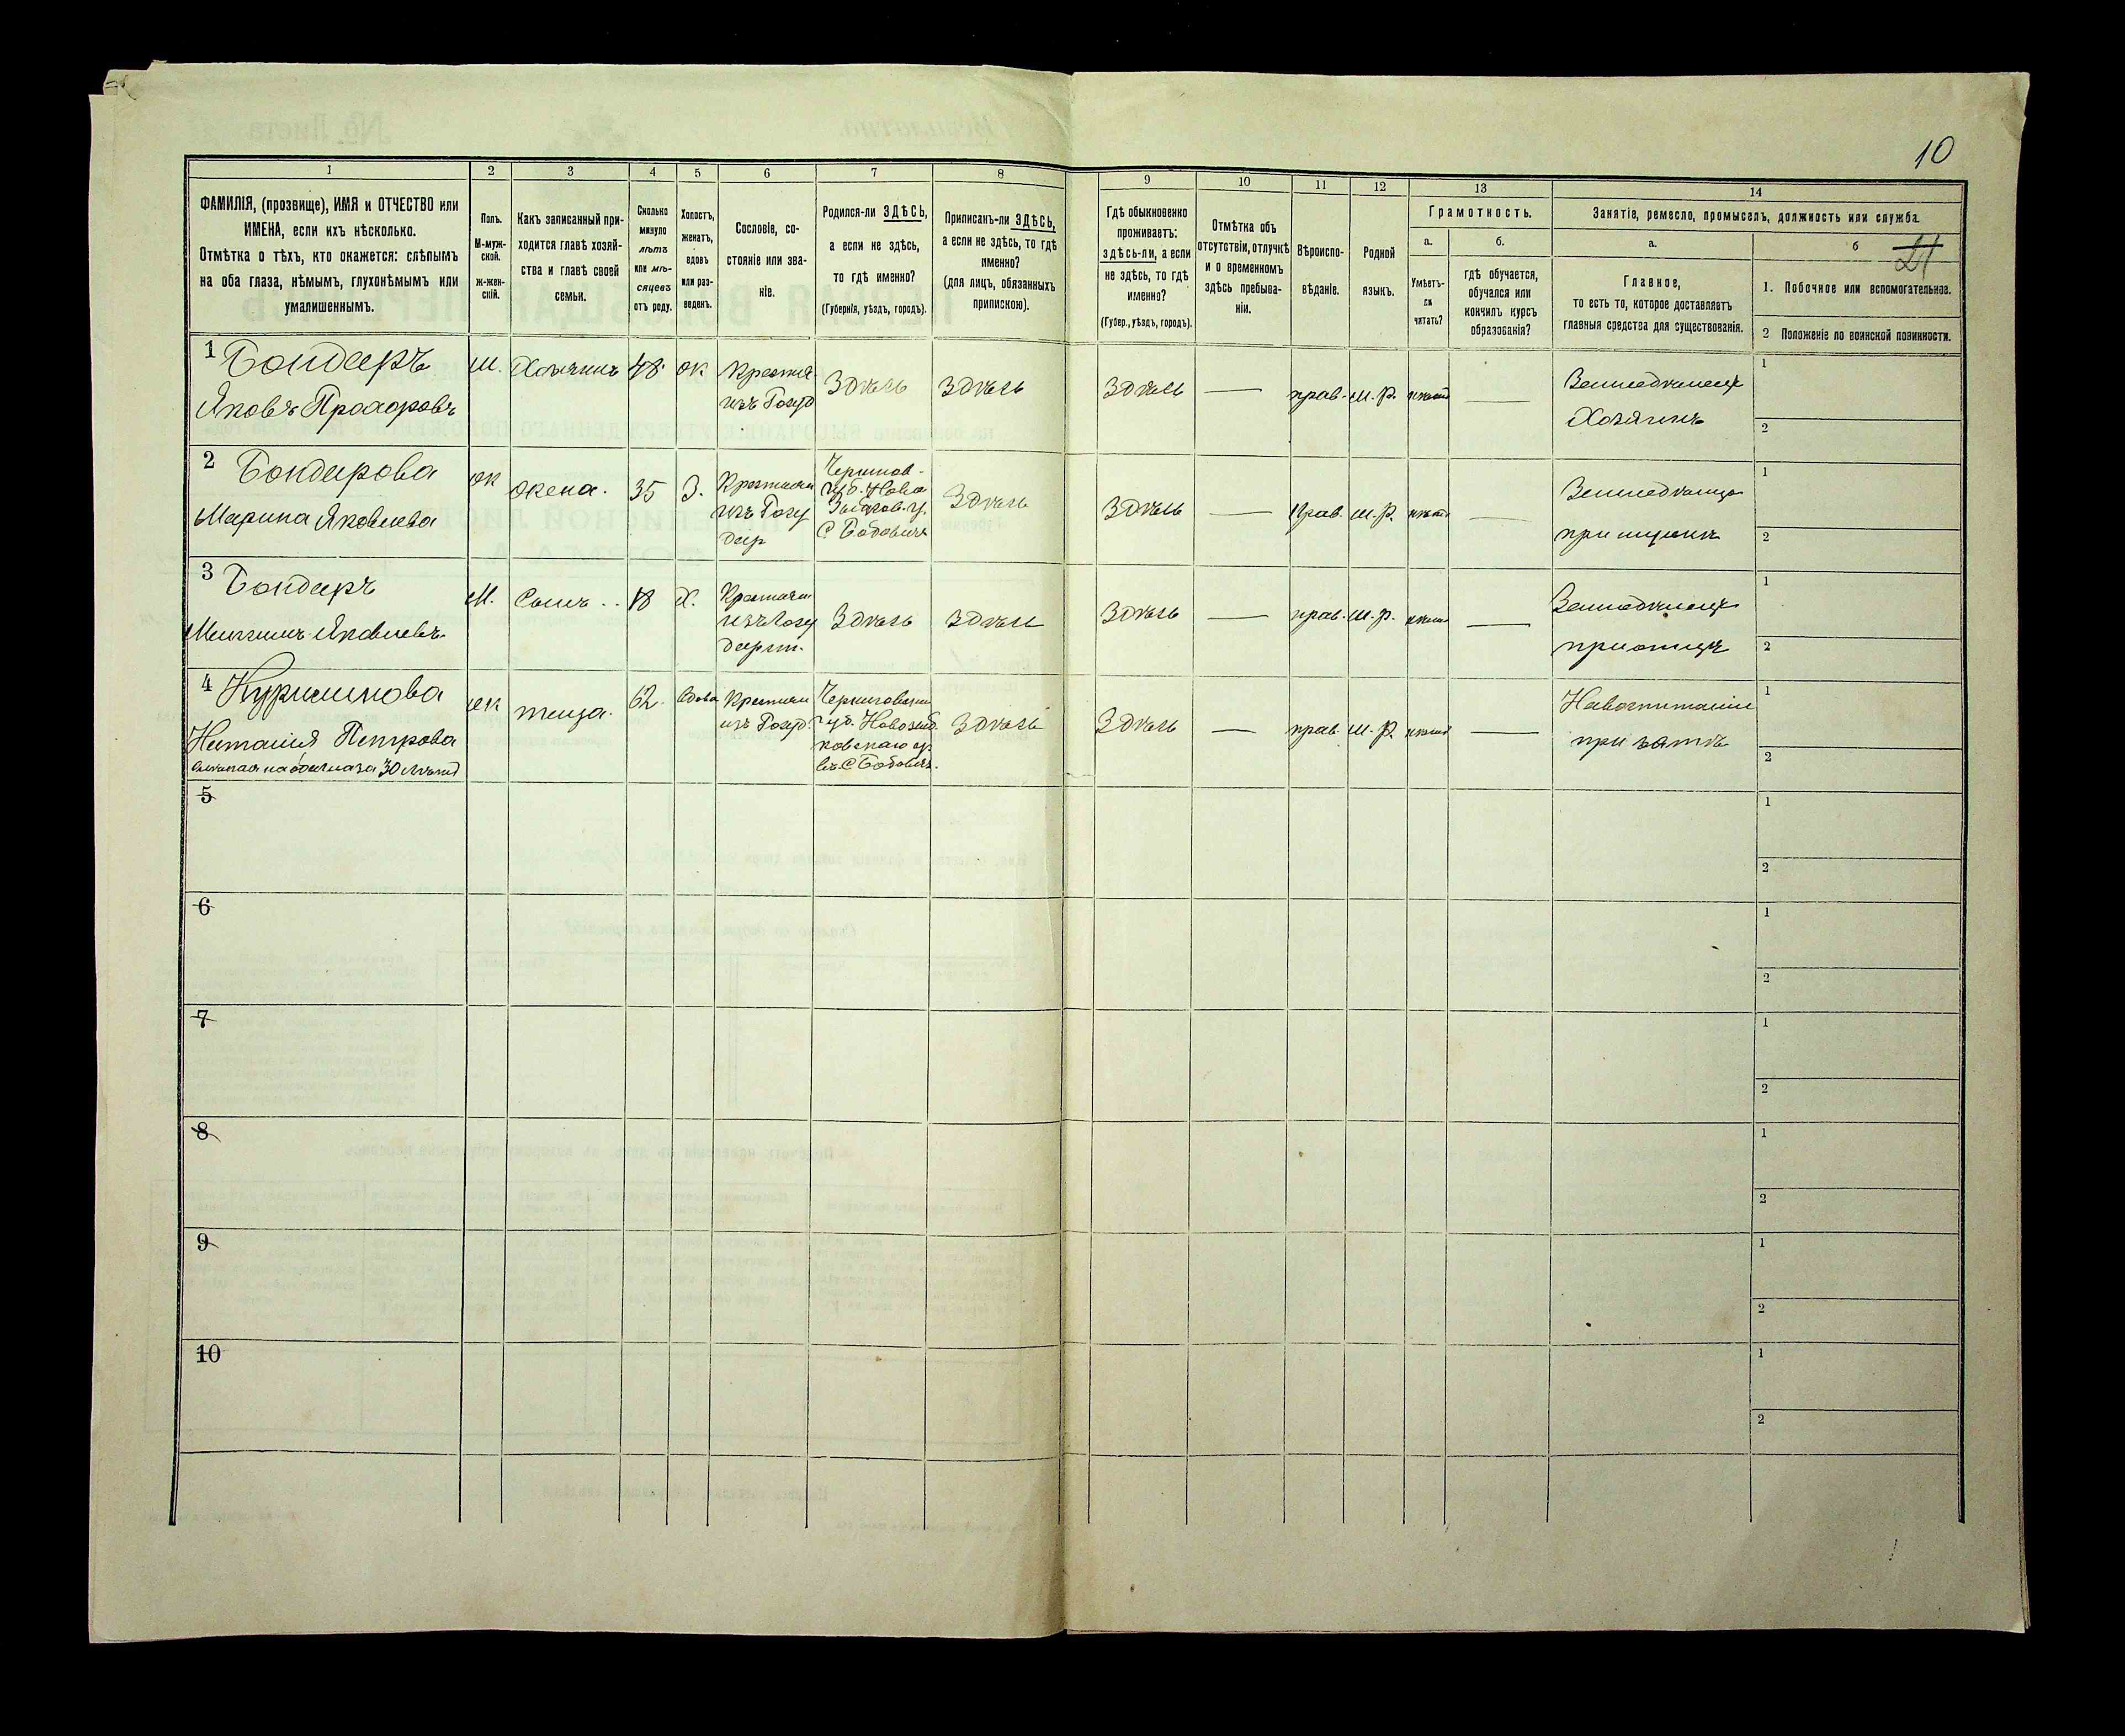 10
1
2
3
4
5
6
7
8
9
10
11
12
13
14
ФАМИЛІЯ, (прозвище), ИМЯ и ОТЧЕСТВО или
ИМЕНА, если ихъ нѣсколько.
Отмѣтка о тѣхъ, кто окажется: слѣпымъ
на оба глаза, нѣмымъ, глухонѣмымъ или
умалишеннымъ.
Полъ.
М-муж-
ской.
ж-жен-
скій.
Какъ записанный при-
ходится главѣ хозяй-
ства и главѣ своей
семьи.
Сколько
минуло
лѣтъ
или мѣ-
сяцевъ
отъ роду.
Холостъ,
женатъ,
вдовъ
или раз-
веденъ.
Сословіе, со-
стояніе или зва-
ніе.
Родился-ли ЗДѢСЬ,
а если не здѣсь,
то гдѣ именно?
(Губернія, уѣздъ, городъ).
Приписанъ-ли ЗДѢСЬ,
а если не здѣсь, то гдѣ
именно?
(для лицъ, обязанныхъ
припискою).
Гдѣ обыкновенно
проживаетъ:
здѣсь-ли, а если
не здѣсь, то гдѣ
именно?
(Губер., уѣздъ, городъ).
Отмѣтка объ
отсутствіи, отлучкѣ
и о временномъ
здѣсь пребыва-
ніи.
Вѣроиспо-
вѣданіе.
Родной
языкъ.
Грамотность.
а.
Умѣетъ-
ли
читать?
б.
гдѣ обучается,
обучался или
кончилъ курсъ
образованія?
Занятіе, ремесло, промыселъ, должность или служба.
а.
Главное,
то есть то, которое доставляетъ
главныя средства для существованія.
б
21
1. Побочное или вспомогательное.
2 Положеніе по воинской повинности.
1 Бондаръ
Яковъ Прохоровъ
М.
Хозяинъ
48
ж
Крестья
изъ Госуд
Здѣсь
Здѣсь
Здѣсь
—
прав.
М. Р.
нѣтъ
—
Земледѣлецъ
Хозяинъ
1
2
2 Бондарова
Марина Яковлева
ж
жена.
35
З.
Крестьян
изъ Госу
дар
Чернигов-
губ. Ново
Зыбков. у.
С Бобовичъ
Здѣсь
Здѣсь
—
Прав.
М. Р.
нѣтъ
—
Земледѣлица
при мужѣ
1
2
3 Бондаръ
Яковлевъ
М.
Сынъ
18
Х.
Крестьян
изъ Госу
дарст.
Здѣсь
Здѣсь
Здѣсь
—
прав.
М. Р.
нѣтъ
—
Земледѣлецъ
при отцѣ
1
2
4
Наталія Петрова
слѣпая на оба глаза 30 лѣтъ
ж
теща.
62
вдова
Крестьян
изъ Госуд.
Черниговской
губ. Новозыб
ковскаго у.
въ С Бобовичъ.
Здѣсь
Здѣсь
—
прав.
М. Р.
нѣтъ
—
При зятѣ
1
2
5
1
2
6
1
2
7
1
2
8
1
2
9
1
2
10
1
2